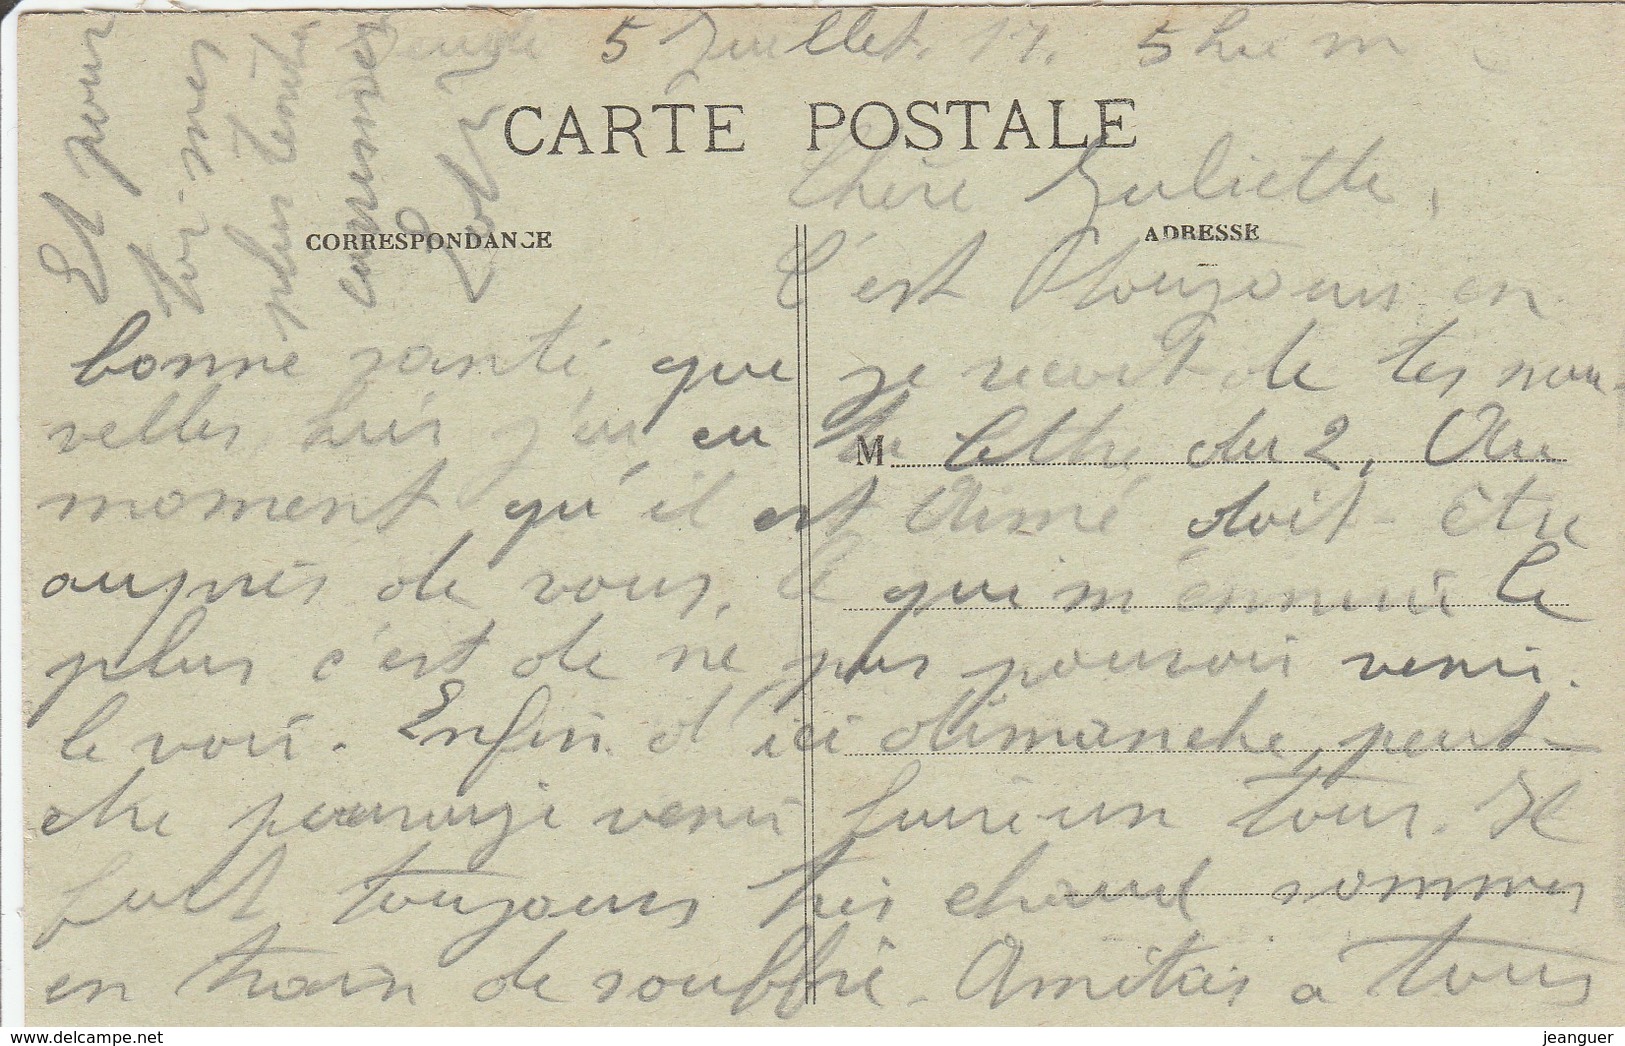 Jeudi 5 Juillet. 17. 5h. m
CARTE POSTALE
Chère Juliette,
CORRESPONDANCE
ADRESSE
C'est toujours en
bonne santé, que je recoit de tes nou-
velles, hier j'ai eu ta lettre du 2. Au
M
moment qu'il est Aimé doit-être
auprès de vous, Ce qui m'ennuie le
plus c'est de ne pas pouvoir venir
le voir. Enfin d'ici dimanche, peut-
etre pourraije venir faire un tour. Il
fait toujours très chaud sommes
en train de souffrir. Amitiés à tous
Et pour
toi mes
plus tendres
caresses
delcampe.net
jeanguer